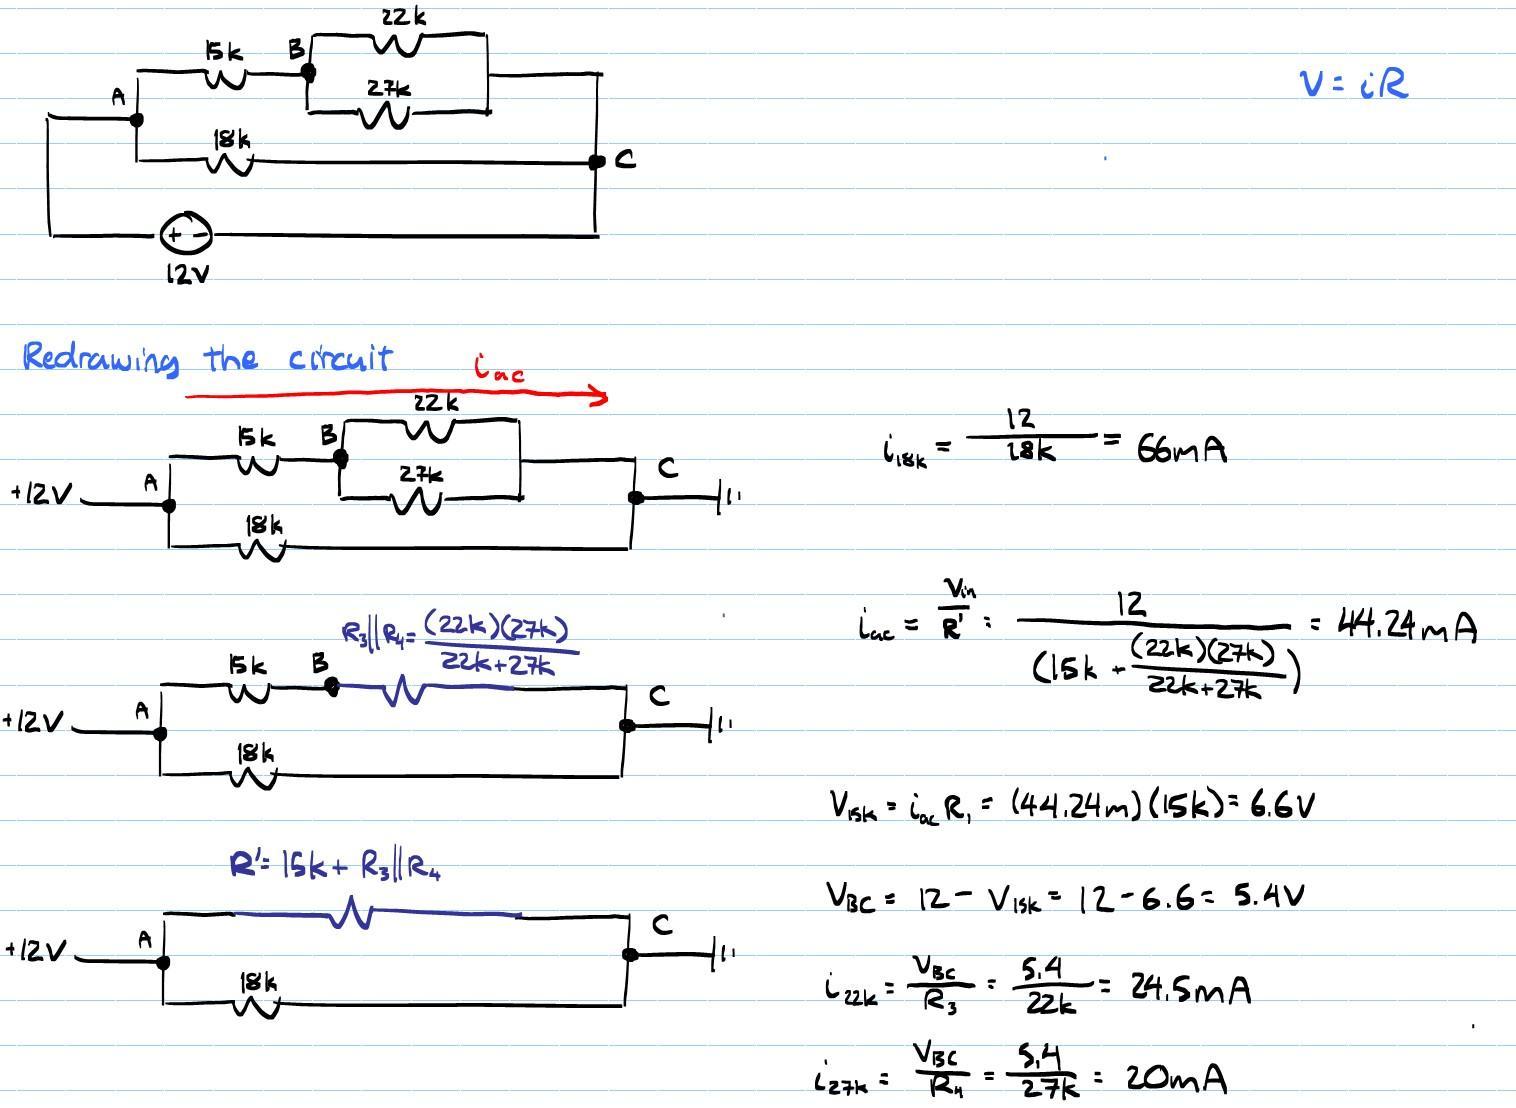 22k
15k B
27k
A
18k
C
+ -
12V
V = iR
Redrawing the circuit
iac
22k
15k B
27k
C
A
+12V
18k
i18k = 12/18k = 66mA
R3||R4 = (22k)(27k)/22k+27k
15k B
C
A
+12V
18k
iac = Vin/R' = 12/(15k + (22k)(27k)/22k+27k) = 44.24mA
V15k = iac R1 = (44.24m)(15k) = 6.6V
R' = 15k + R3||R4
C
A
+12V
18k
VBC = 12 - V15k = 12 - 6.6 = 5.4V
i22k = VBC/R3 = 5.4/22k = 24.5mA
i27k = VBC/R4 = 5.4/27k = 20mA